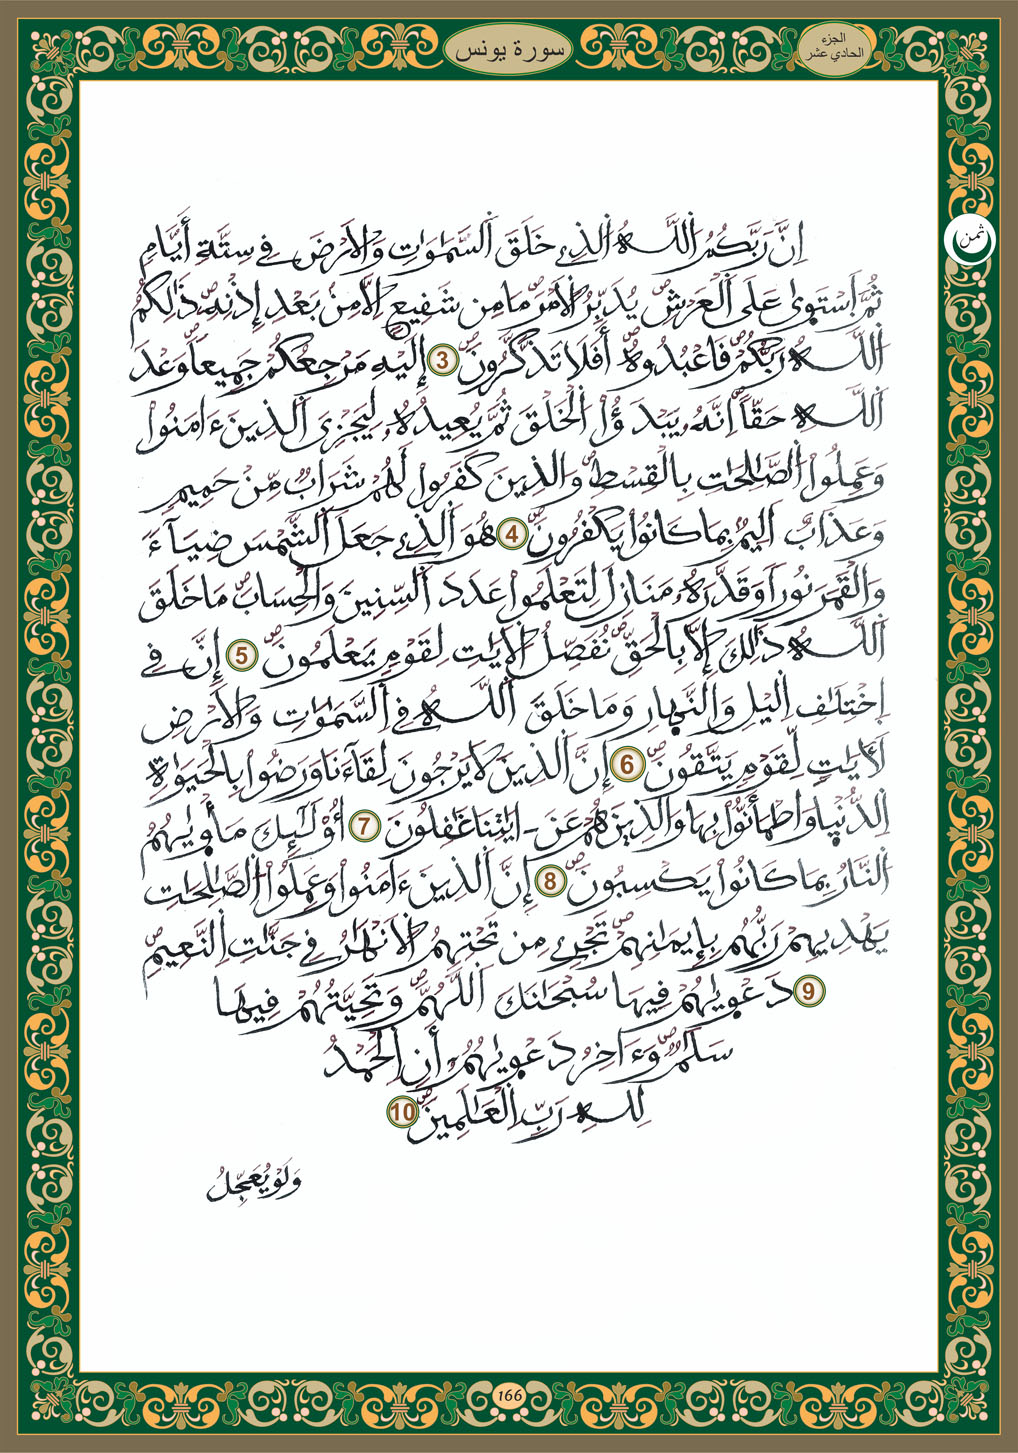 سورة يونس
الجزء
الحادي عشر
ثمن
اِنَّ رَبَّكُمُ اُ۬للَّهُ اُ۬لذِے خَلَقَ اَ۬لسَّمَٰوَٰتِ وَالَارْضَ فِے سِتَّةِ أَيَّامٖ
ثُمَّ اَ۪سْتَو۪يٰ عَلَي اَ۬لْعَرْشِۖ يُدَبِّرُ اُ۬لَامْرَۖ مَا مِن شَفِيعٍ اِلَّا مِنۢ بَعْدِ إِذْنِهِۦۖ ذَٰلِكُمُ
اُ۬للَّهُ رَبُّكُمْ فَاعْبُدُوهُۖ أَفَلَا تَذَّكَّرُونَۖ 3 إِلَيْهِ مَرْجِعُكُمْ جَمِيعاٗۖ وَعْدَ
اَ۬للَّهِ حَقّاًۖ اِنَّهُۥ يَبْدَؤُاْ اُ۬لْخَلْقَ ثُمَّ يُعِيدُهُۥ لِيَجْزِيَ اَ۬لذِينَ ءَامَنُواْ
وَعَمِلُواْ اُ۬لصَّٰلِحَٰتِ بِالْقِسْطِۖ وَالذِينَ كَفَرُواْ لَهُمْ شَرَابٞ مِّنْ حَمِيمٖ
وَعَذَابٌ اَلِيمُۢ بِمَا كَانُواْ يَكْفُرُونَۖ 4 هُوَ اَ۬لذِے جَعَلَ اَ۬لشَّمْسَ ضِيَآءٗ
وَالْقَمَرَ نُوراٗ وَقَدَّرَهُۥ مَنَازِلَ لِتَعْلَمُواْ عَدَدَ اَ۬لسِّنِينَ وَالْحِسَابَۖ مَا خَلَقَ
اَ۬للَّهُ ذَٰلِكَ إِلَّا بِالْحَقِّۖ نُفَصِّلُ اُ۬لَايَٰتِ لِقَوْمٖ يَعْلَمُونَۖ 5 إِنَّ فِے
اِ۪خْتِلَٰفِ اِ۬ليْلِ وَالنَّهٰارِ وَمَا خَلَقَ اَ۬للَّهُ فِے اِ۬لسَّمَٰوَٰتِ وَالَارْضِ
لَأٓيَٰتٖ لِّقَوْمٖ يَتَّقُونَۖ 6 إِنَّ اَ۬لذِينَ لَا يَرْجُونَ لِقَآءَنَا وَرَضُواْ بِالْحَيَوٰةِ
اِ۬لدُّنْي۪ا وَاطْمَأَنُّواْ بِهَا وَالذِينَ هُمْ عَنَ اٰيَٰتِنَا غَٰفِلُونَ 7 أُوْلَٰٓئِكَ مَأْو۪يٰهُمُ
اُ۬لنَّارُ بِمَا كَانُواْ يَكْسِبُونَۖ 8 إِنَّ اَ۬لذِينَ ءَامَنُواْ وَعَمِلُواْ اُ۬لصَّٰلِحَٰتِ
يَهْدِيهِمْ رَبُّهُم بِإِيمَٰنِهِمْۖ تَجْرِے مِن تَحْتِهِمُ اُ۬لَانْهَٰرُ فِے جَنَّٰتِ اِ۬لنَّعِيمِۖ
9 دَعْو۪يٰهُمْ فِيهَا سُبْحَٰنَكَ اَ۬للَّهُمَّۖ وَتَحِيَّتُهُمْ فِيهَا
سَلَٰمٞۖ وَءَاخِرُ دَعْو۪يٰهُمُۥٓ أَنِ اِ۬لْحَمْدُ
لِلهِ رَبِّ اِ۬لْعَٰلَمِينَۖ 10
وَلَوْ يُعَجِّلُ
166